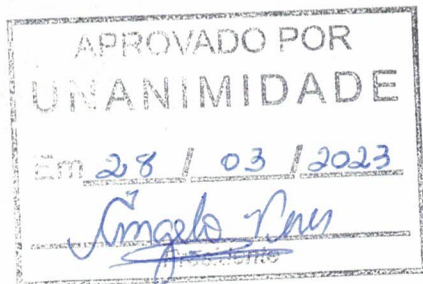 APROVADO POR
UNANIMIDADE
Em 28 / 03 / 2023
Presidente